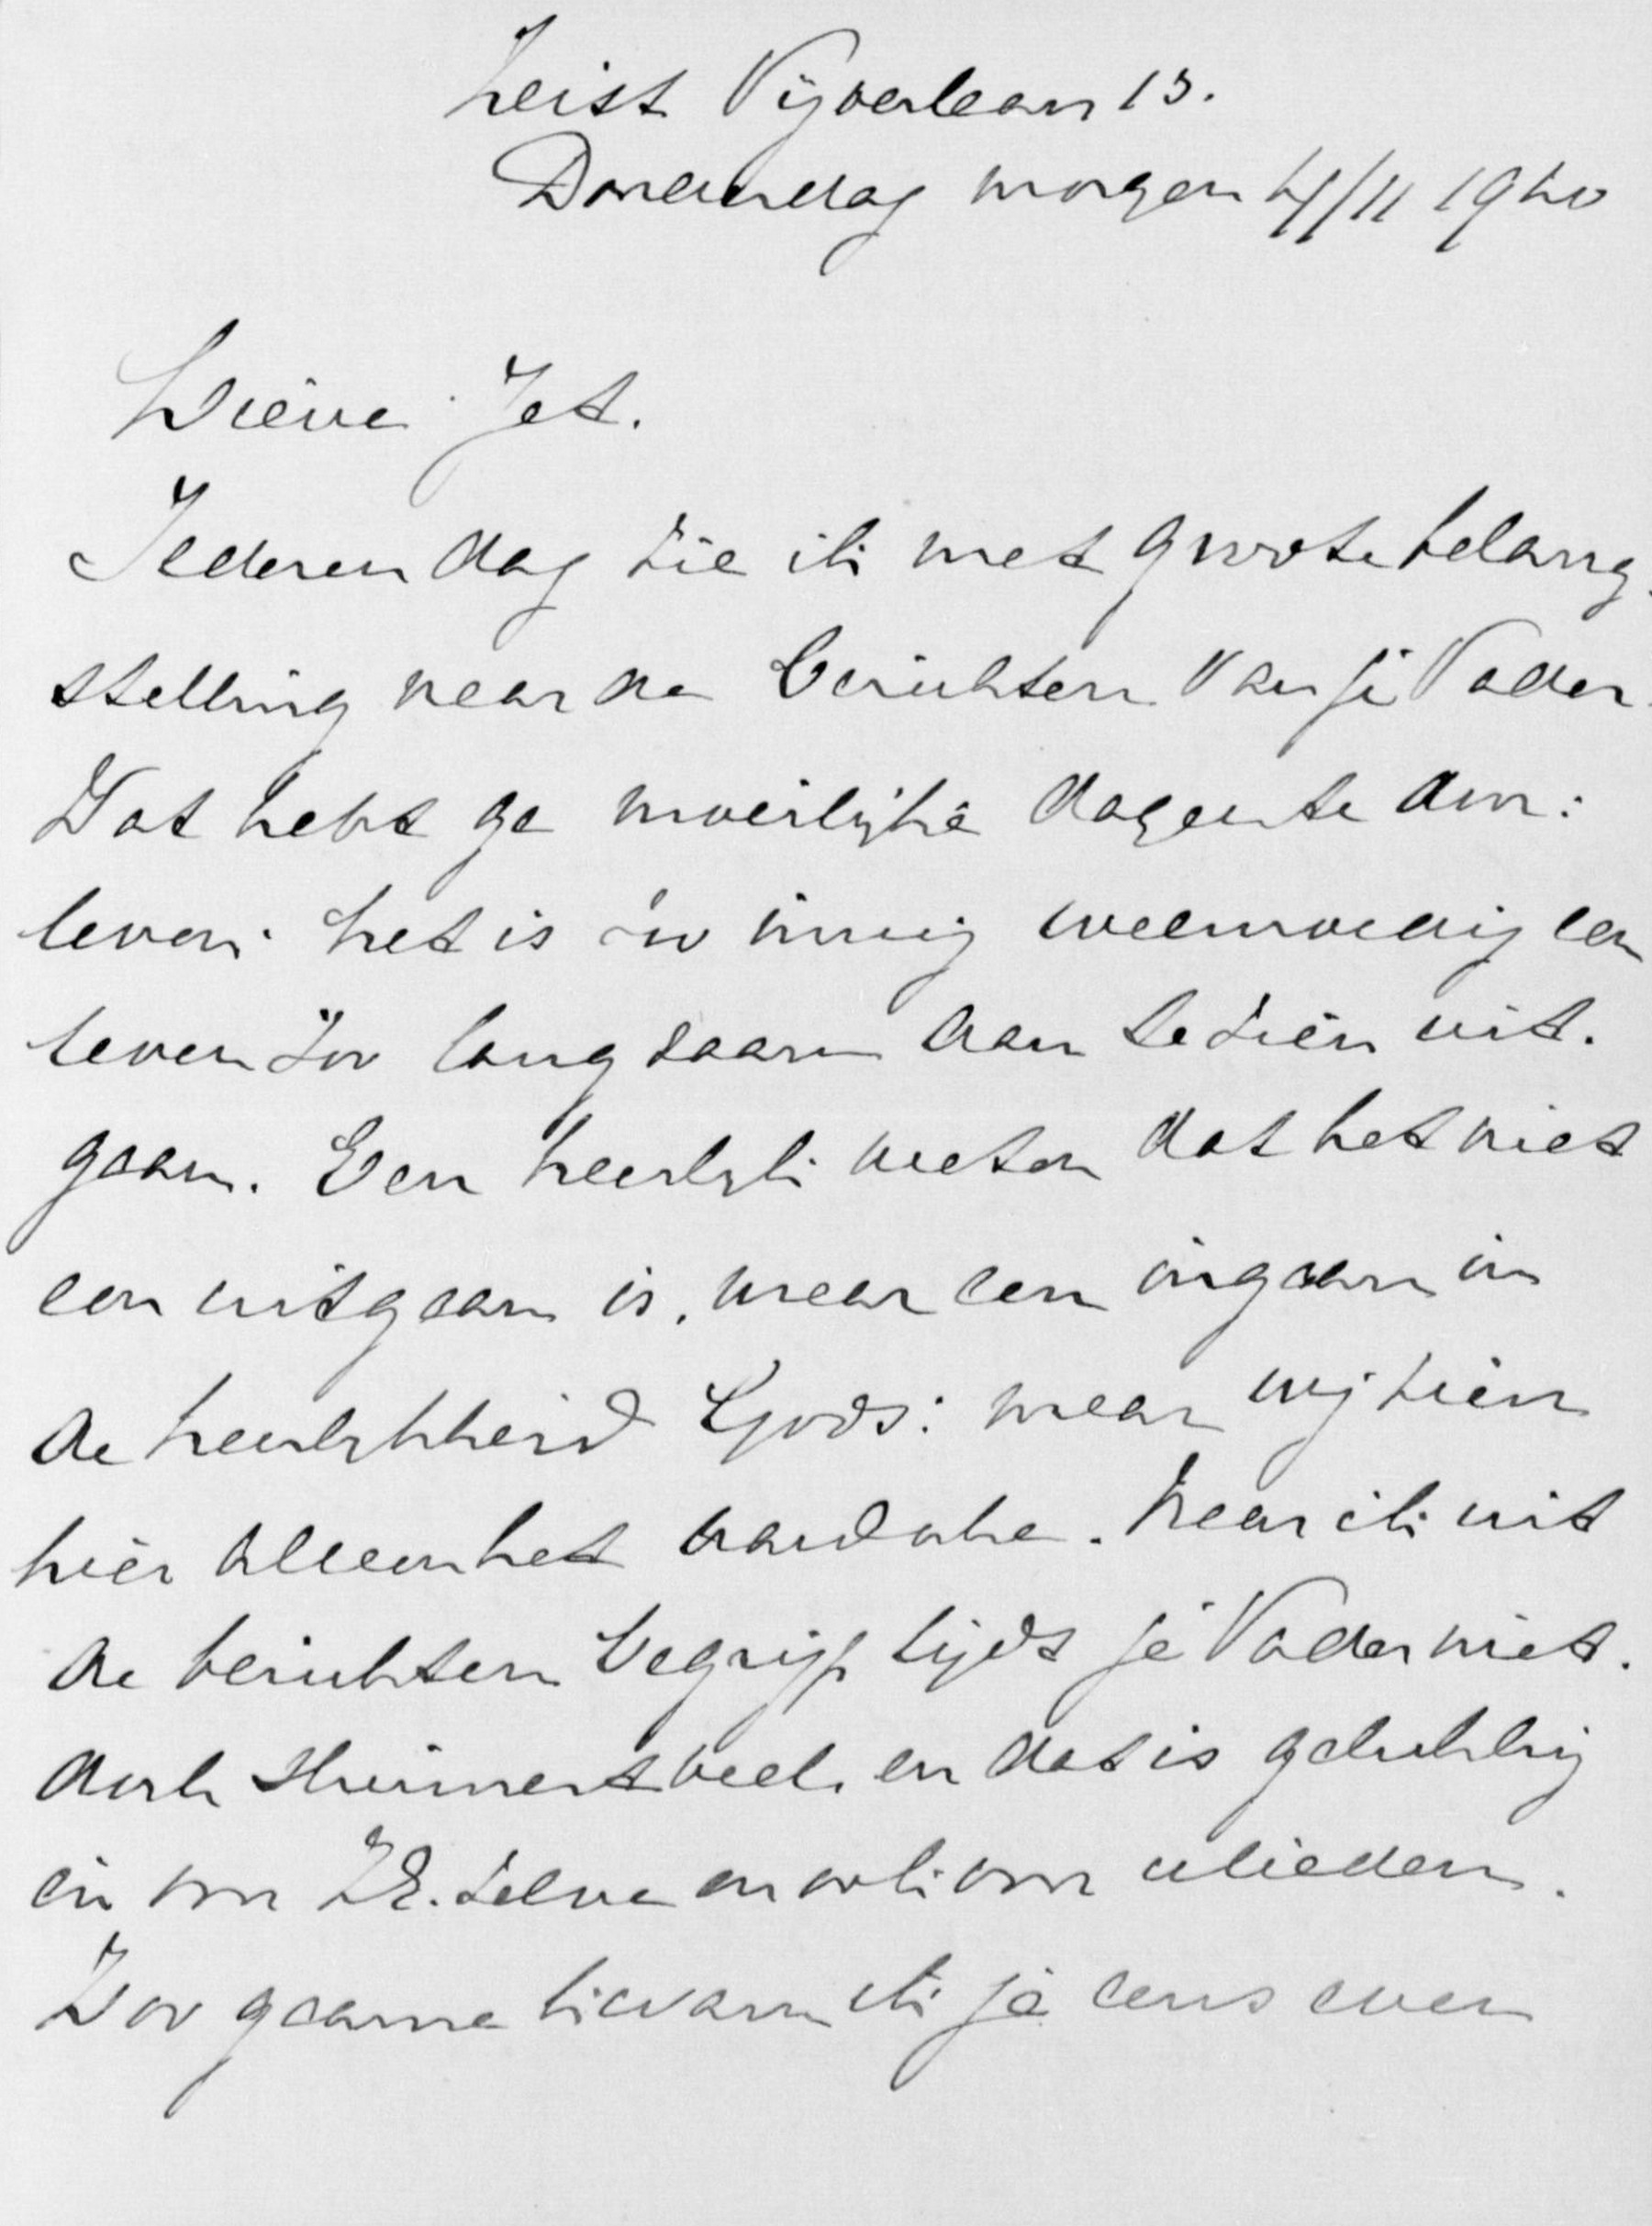 Zeist Vijverlaan 15.
Donderdag morgen 4/11 1920
Lieve Jet.
Iederen dag zie ik met groote belang
stelling naar de berichten van je Vader.
Wat hebt ge moeilijke dagen te door:
leven. het is zoo innig weemoedig een
leven zoo langzaam aan te zien uit.
gaan. Een heerlijk weten dat het niet
een uitgaan is, maar een ingaan in
de heerlijkheid Gods: maar wij zien
hier alleen het aardsche. Naar ik uit
de berichten begrijp lijdt je Vader niet.
doch sluimert veel. en dat is gelukkig
én voor Z.E. zelve en ook voor ulieden.
Zoo gaarne kwam ik je eens even